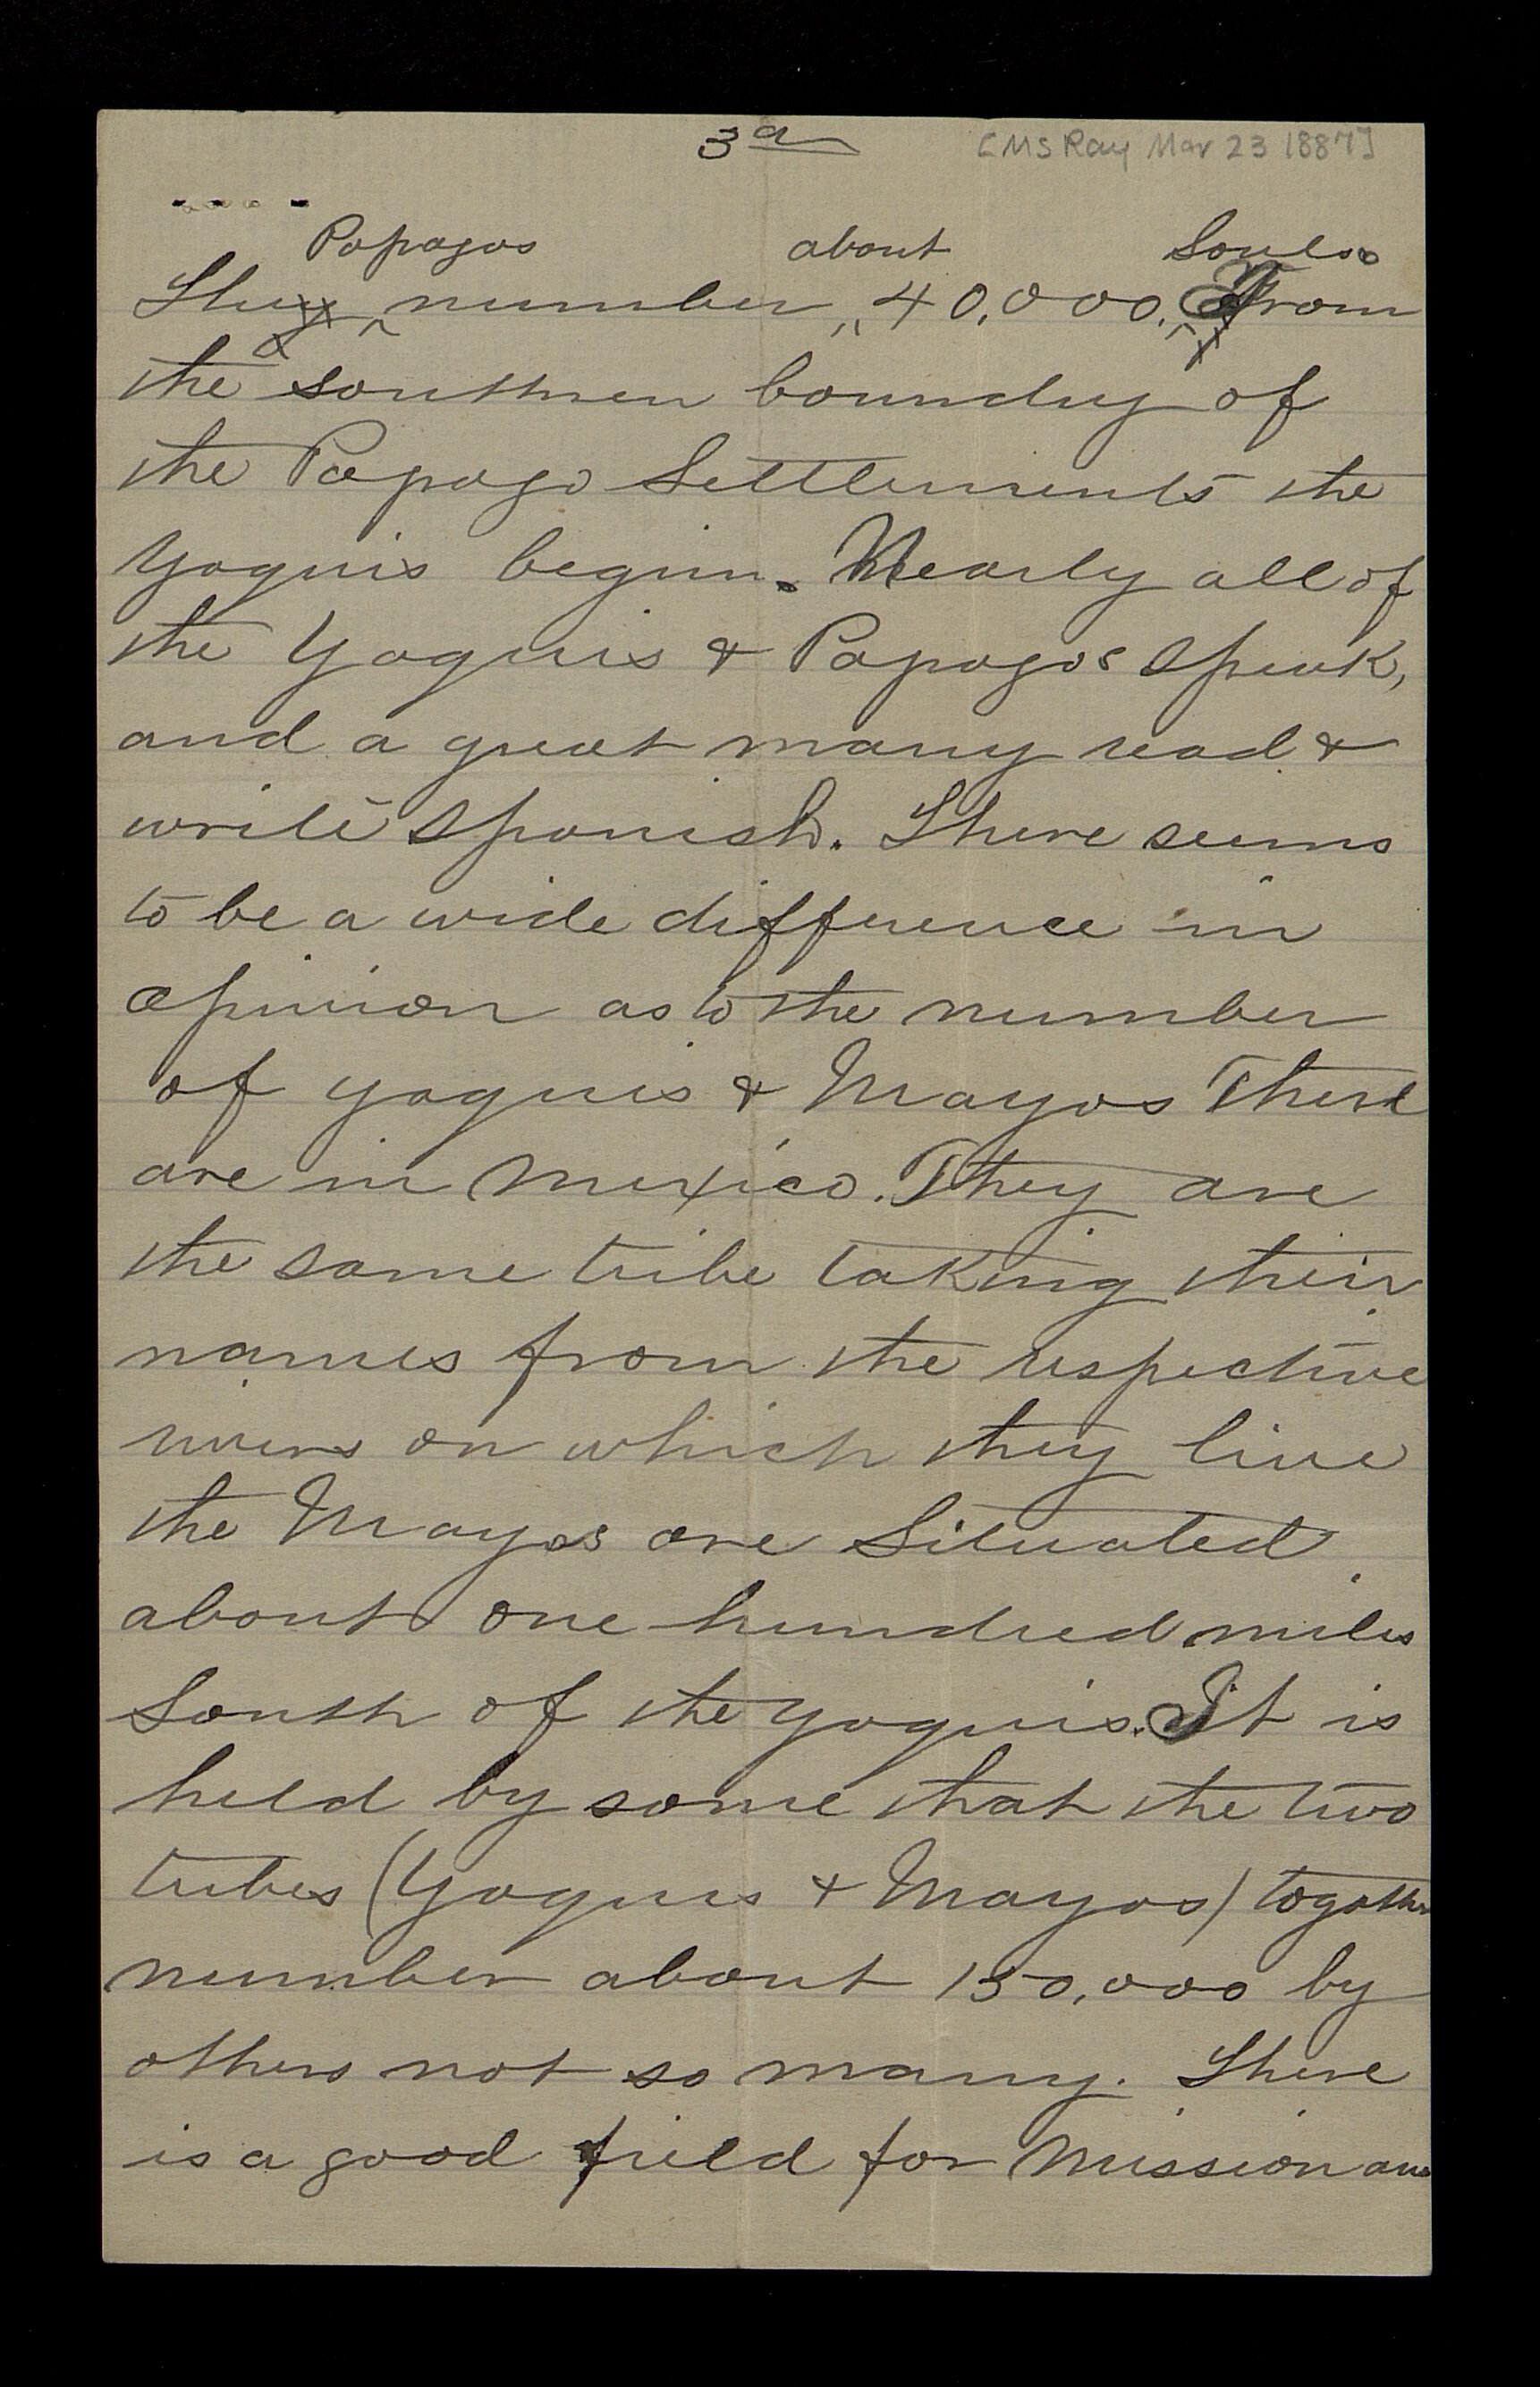 3a
[MS Ray Mar 23 1887]
Papagos about Souls.
They number 40,000. From
the southren boundry of
the Papago Settlements the
Yaquis begin. Nearly all of
the Yaquis & Papagos speak,
and a great many read &
write Spanish. There seems
to be a wide difference in
opinion as to the number
of yaquis & Mayos There
are in Mexico. They are
the same tribe taking their
names from the respective
rivers on which they live
the Mayos are Situated
about one hundred miles
South of the yaquis. It is
held by some that the two
tribes (Yaquis & Mayos) together
number about 150,000 by
others not so many. There
is a good field for Mission